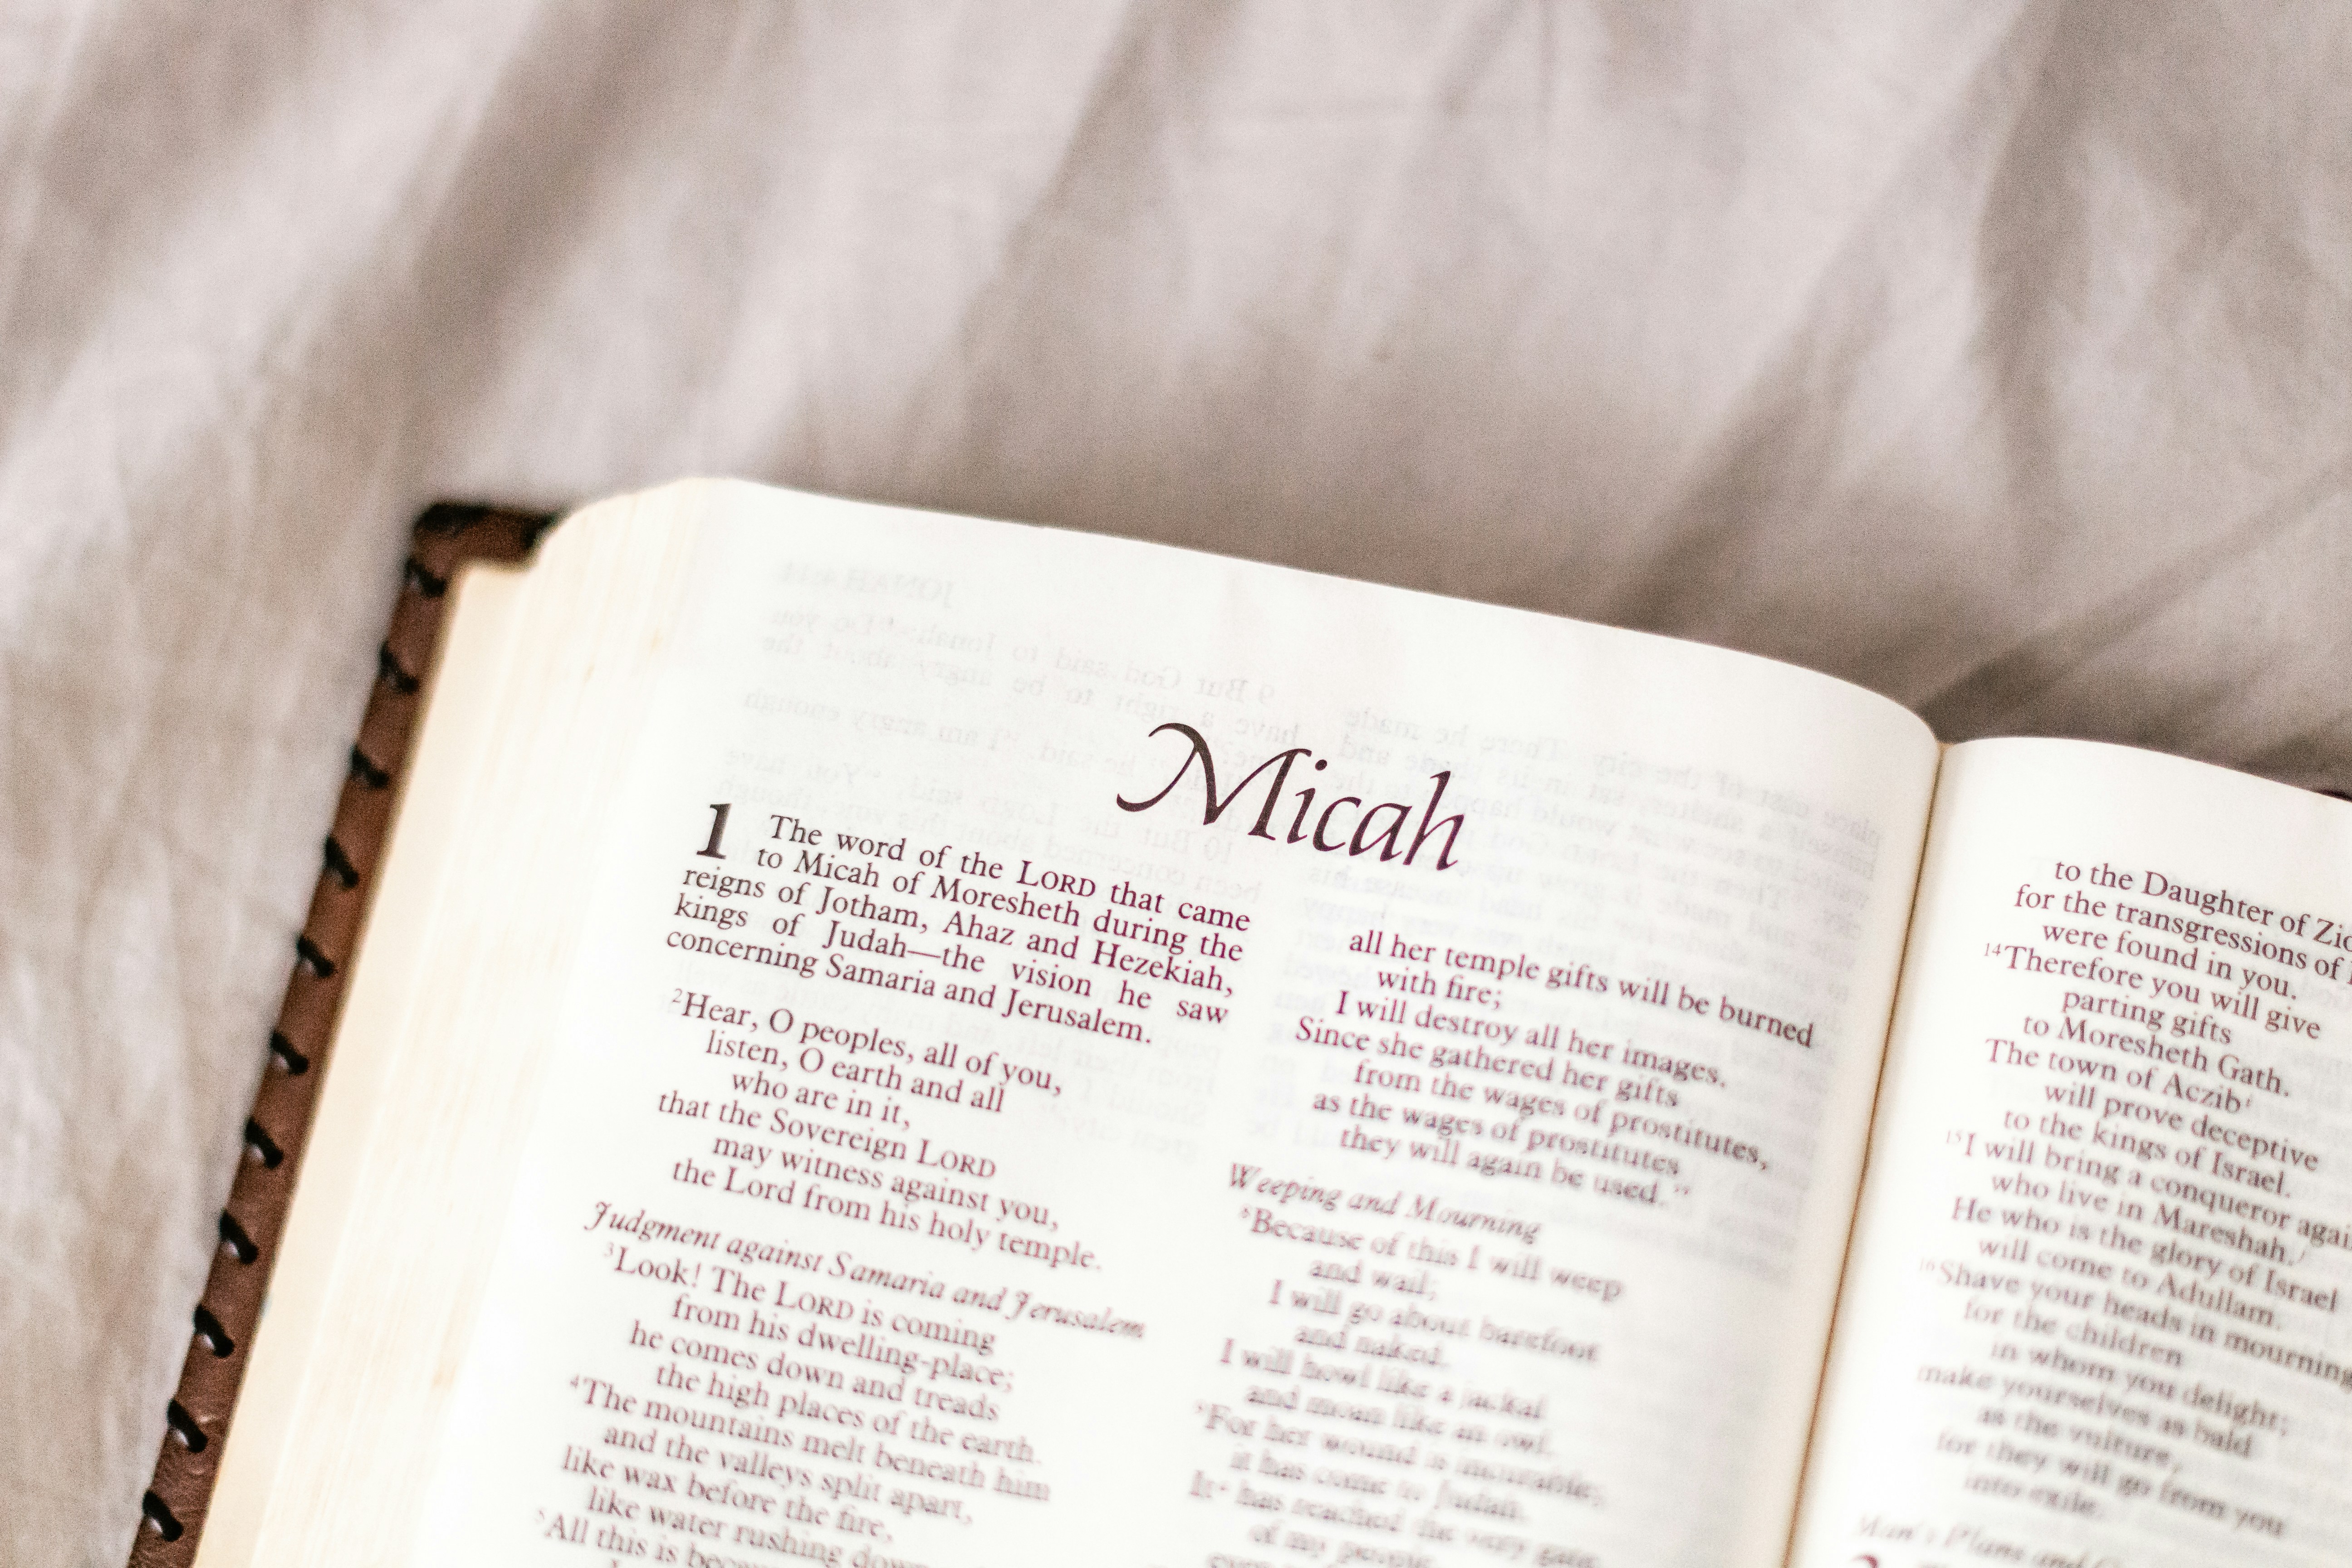 Micah
1 The word of the LORD that came
to Micah of Moresheth during the
reigns of Jotham, Ahaz and Hezekiah,
kings of Judah—the vision he saw
concerning Samaria and Jerusalem.
2Hear, O peoples, all of you,
listen, O earth and all
who are in it,
that the Sovereign LORD
may witness against you,
the Lord from his holy temple.
Judgment against Samaria and Jerusalem
3Look! The LORD is coming
from his dwelling-place;
he comes down and treads
the high places of the earth.
4The mountains melt beneath him
and the valleys split apart,
like wax before the fire,
like water rushing down
5All this is because
all her temple gifts will be burned
with fire;
I will destroy all her images.
Since she gathered her gifts
from the wages of prostitutes,
as the wages of prostitutes
they will again be used."
Weeping and Mourning
8Because of this I will weep
and wail;
I will go about barefoot
and naked.
I will howl like a jackal
and moan like an owl.
9For her wound is incurable;
it has come to Judah.
It has reached the very gate
of my people,
to the Daughter of Zion
for the transgressions of
were found in you.
14Therefore you will give
parting gifts
to Moresheth Gath.
The town of Aczib
will prove deceptive
to the kings of Israel.
15I will bring a conqueror
who live in Mareshah.
He who is the glory of Israel
will come to Adullam.
16Shave your heads in mourning
for the children
in whom you delight;
make yourselves as bald
as the vulture,
for they will go from you
into exile.
Man's Plans and